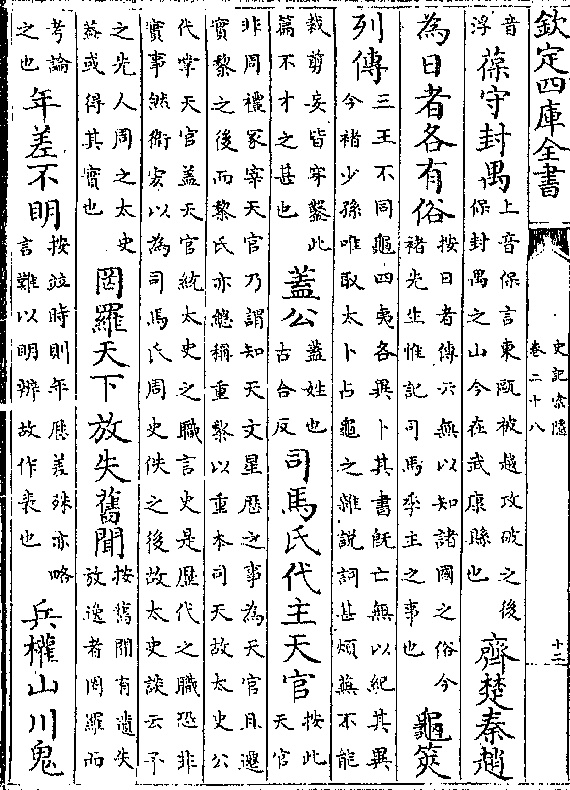 欽定四庫全書
史記索隱
卷二十八
十二
音浮葆守封禺上音保言東甌被越攻破之後保封禺之山今在武康縣也齊楚秦趙
為日者各有俗按日者傳云無以知諸國之俗今褚先生惟記司馬季主之事也龜筴
列傳三王不同龜四夷各異卜其書既亡無以紀其異今褚少孫唯取太卜占龜之雜說詞甚煩蕪不能
裁剪妄皆穿鑿此篇不才之甚也蓋公蓋姓也古合反司馬氏代主天官按此天官
非周禮冢宰天官乃謂知天文星歷之事為天官且遷實黎之後而黎氏亦總稱重黎以重本司天故太史公
代掌天官蓋天官統太史之職言史是歷代之職恐非實事然衛宏以為司馬氏周史佚之後故太史談云予
之先人周之太史蓋或得其實也罔羅天下放失舊聞按舊聞有遺失放逸者罔羅而
考論之也年差不明按竝時則年歷差殊亦略言難以明辨故作表也兵權山川鬼